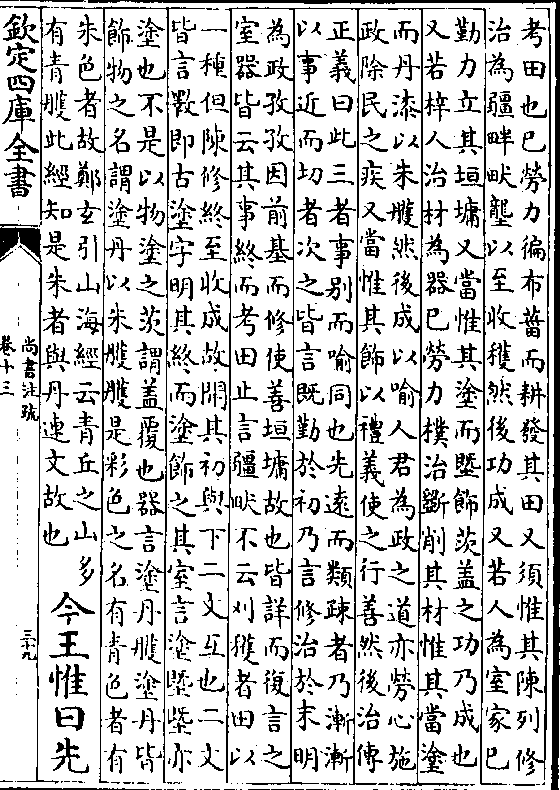 考田也已勞力徧布菑而耕發其田又須惟其陳列修
治為疆畔畎壟以至收穫然後功成又若人為室家已
勤力立其垣墉又當惟其塗而塈飾茨盖之功乃成也
又若梓人治材為器已勞力樸治斲削其材惟其當塗
而丹漆以朱雘然後成以喻人君為政之道亦勞心施
政除民之疾又當惟其飾以禮義使之行善然後治傳
正義曰此三者事別而喻同也先遠而類疎者乃漸漸
以事近而切者次之皆言既勤於初乃言修治於末明
為政孜孜因前基而修使善垣墉故也皆詳而復言之
室器皆云其事終而考田止言疆畎不云刈穫者田以
一種但陳修終至收成故開其初與下二文互也二文
皆言斁即古塗字明其終而塗飾之其室言塗塈塈亦
塗也不是以物塗之茨謂盖覆也器言塗丹雘塗丹皆
飾物之名謂塗丹以朱雘雘是彩色之名有青色者有
朱色者故鄭玄引山海經云青丘之山多
有青雘此經知是朱者與丹連文故也
今王惟曰先
欽定四庫全書
尚書注疏
卷十三
三十九